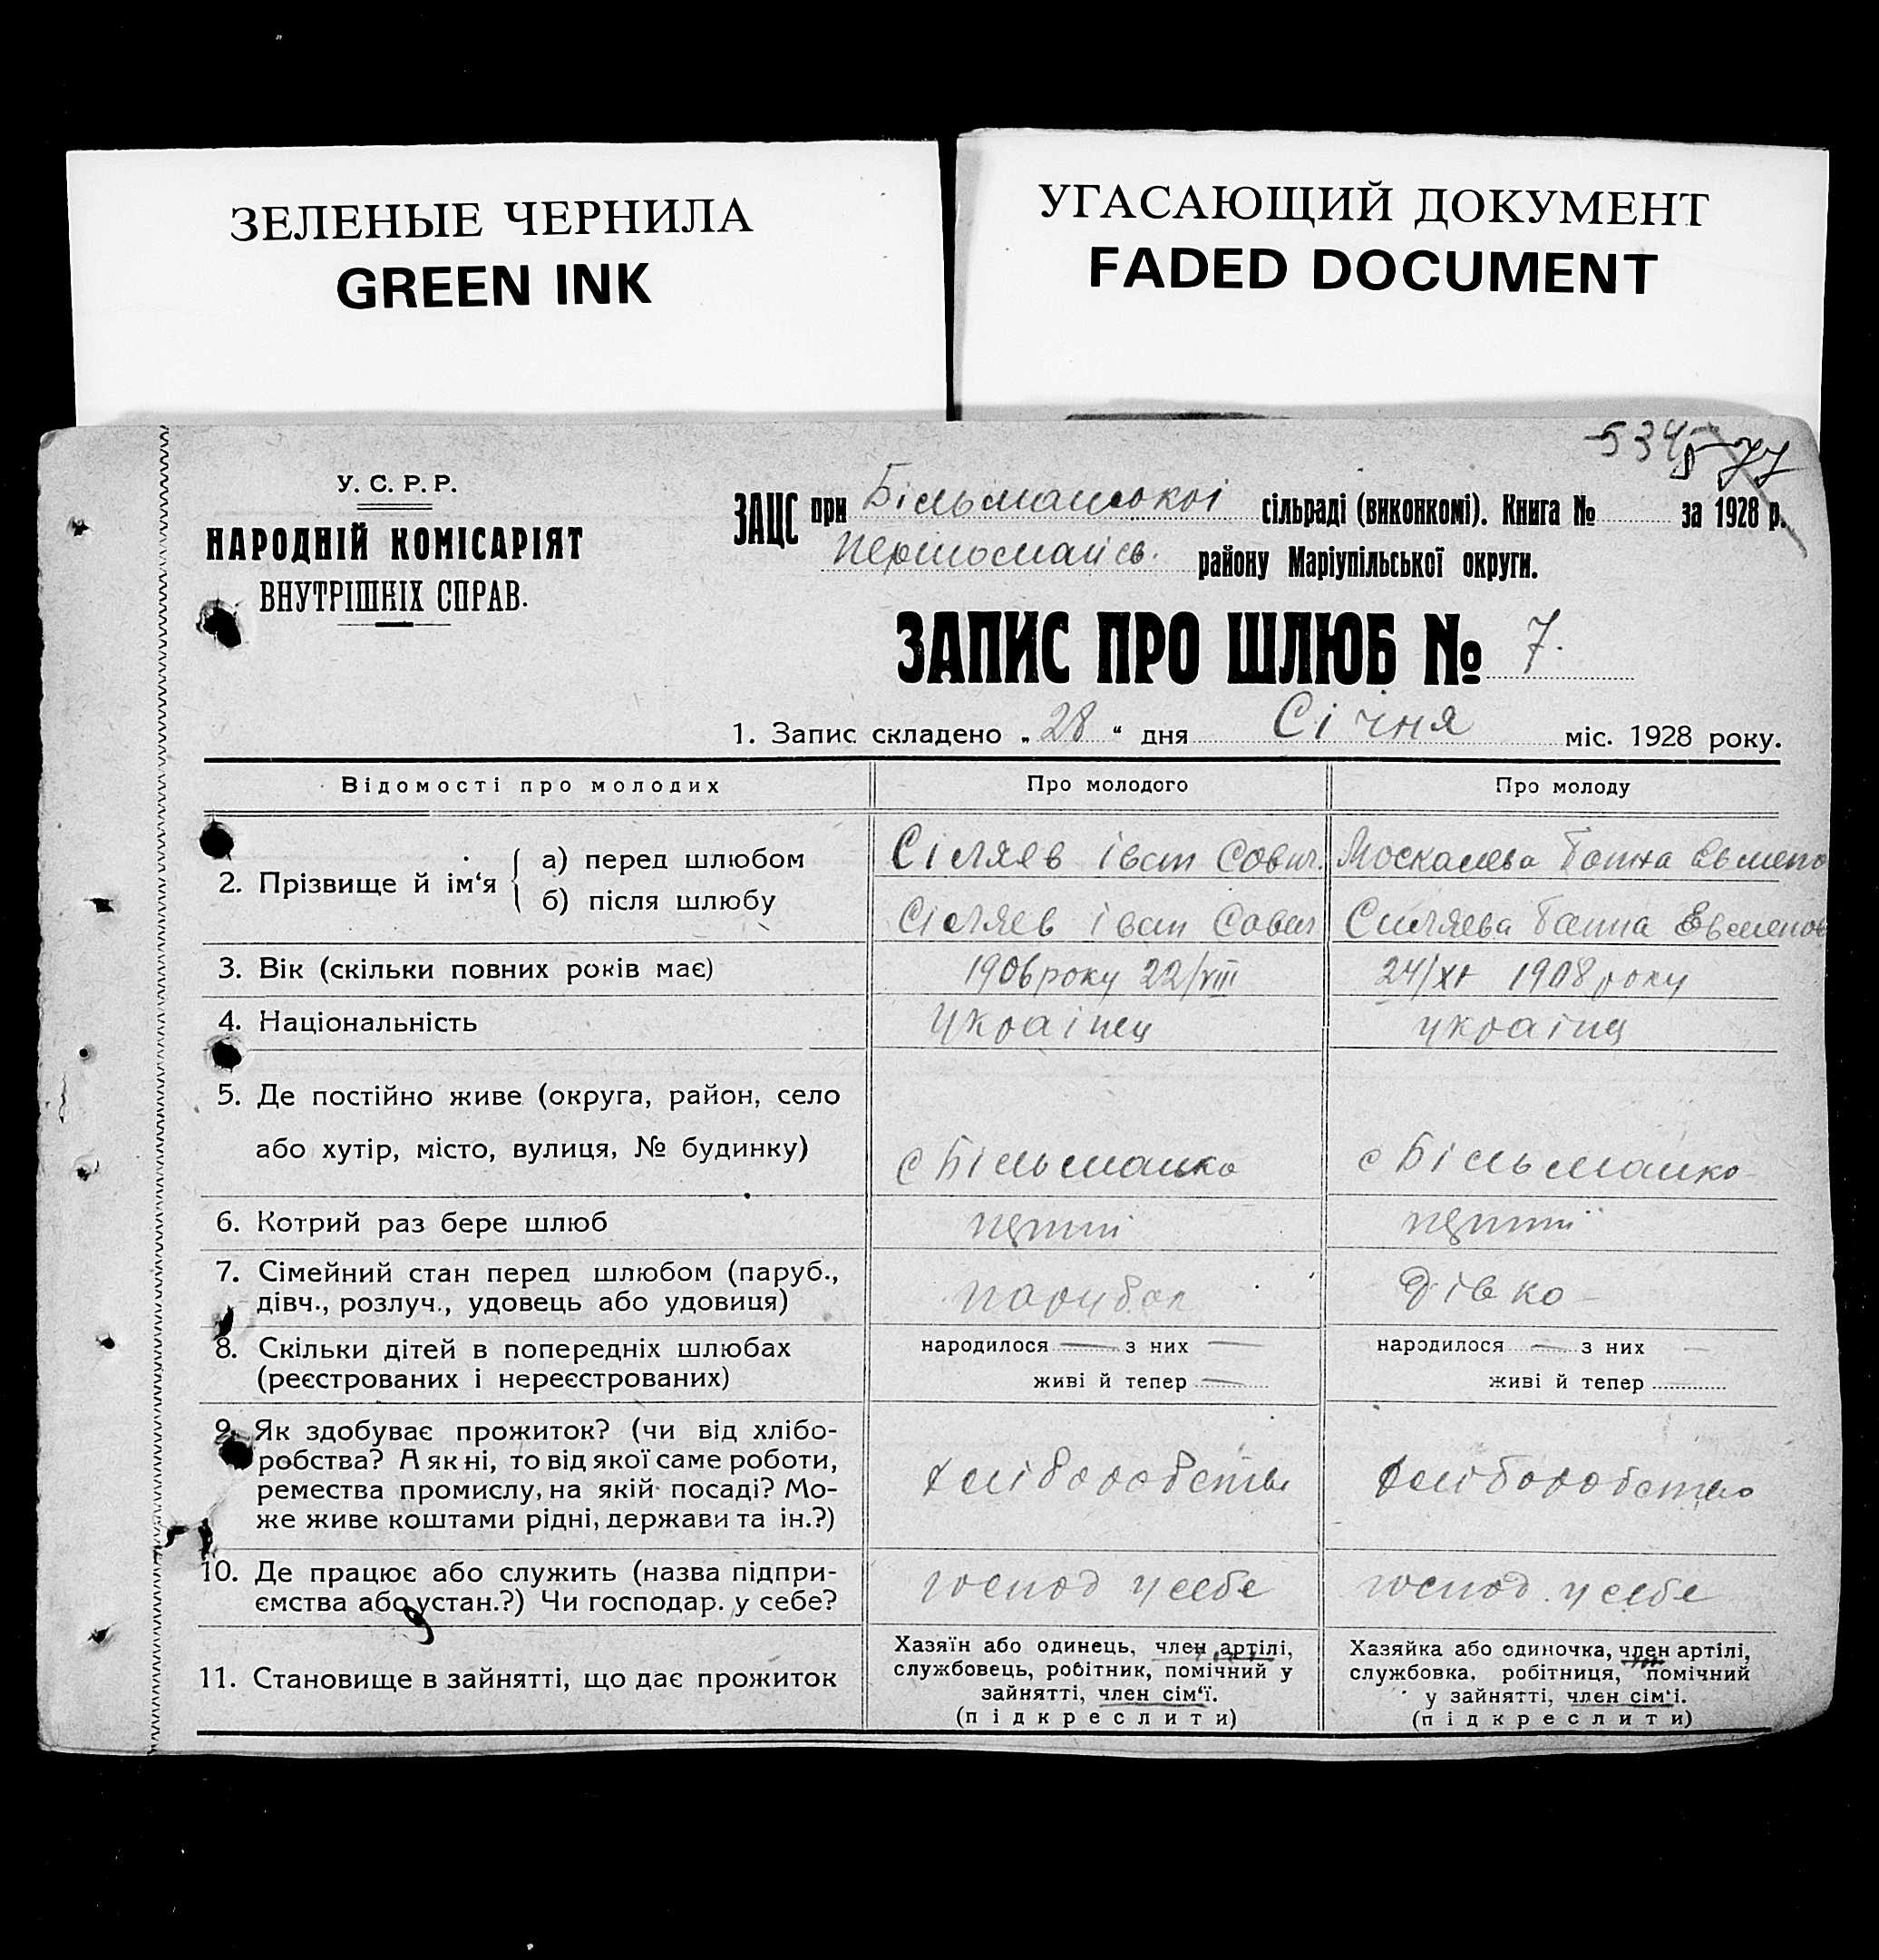 ЗЕЛЕНЫЕ ЧЕРНИЛА
GREEN INK
УГАСАЮЩИЙ ДОКУМЕНТ
FADED DOCUMENT
534 77
У. С. Р. Р.
НАРОДНІЙ КОМІСАРІЯТ
ВНУТРІШНІХ СПРАВ.
ЗАЦС при Більманської сільраді (виконкомі). Книга № за 1928 р.
Першомайсв. району Маріупільської округи.
ЗАПИС ПРО ШЛЮБ № 7.
1. Запис складено „28“ дня Січня міс. 1928 року.
Відомості про молодих
Про молодого
Про молоду
2. Прізвище й ім‘я
а) перед шлюбом
Сіляев Іван Савич.
Москалева Евмено
б) після шлюбу
Сіляев Іван Савич
Силяева Евменов
3. Вік (скільки повних років має)
1906 року 22/VIII
24/XI 1908 року
4. Національність
українец
українц
5. Де постійно живе (округа, район, село
або хутір, місто, вулиця, № будинку)
с Більманка
с Більманка
6. Котрий раз бере шлюб
7. Сімейний стан перед шлюбом (паруб.,
дівч., розлуч., удовець або удовиця)
парубок
дівка
8. Скільки дітей в попередніх шлюбах
(реєстрованих і нереєстрованих)
народилося — з них —
живі й тепер —
народилося — з них —
живі й тепер
9. Як здобуває прожиток? (чи від хлібо-
робства? А як ні, то від якої саме роботи,
ремества промислу, на якій посаді? Мо-
же живе коштами рідні, держави та ін.?)
хліборобство
хліборобство
10. Де працює або служить (назва підпри-
ємства або устан.?) Чи господар. у себе?
господ у себе
господ. у себе
11. Становище в зайнятті, що дає прожиток
Хазяїн або одинець, член артілі,
службовець, робітник, помічний у
зайнятті, член сім‘ї.
(підкреслити)
Хазяйка або одиночка, член артілі,
службовка, робітниця, помічний
у зайнятті, член сім‘і.
(підкреслити)